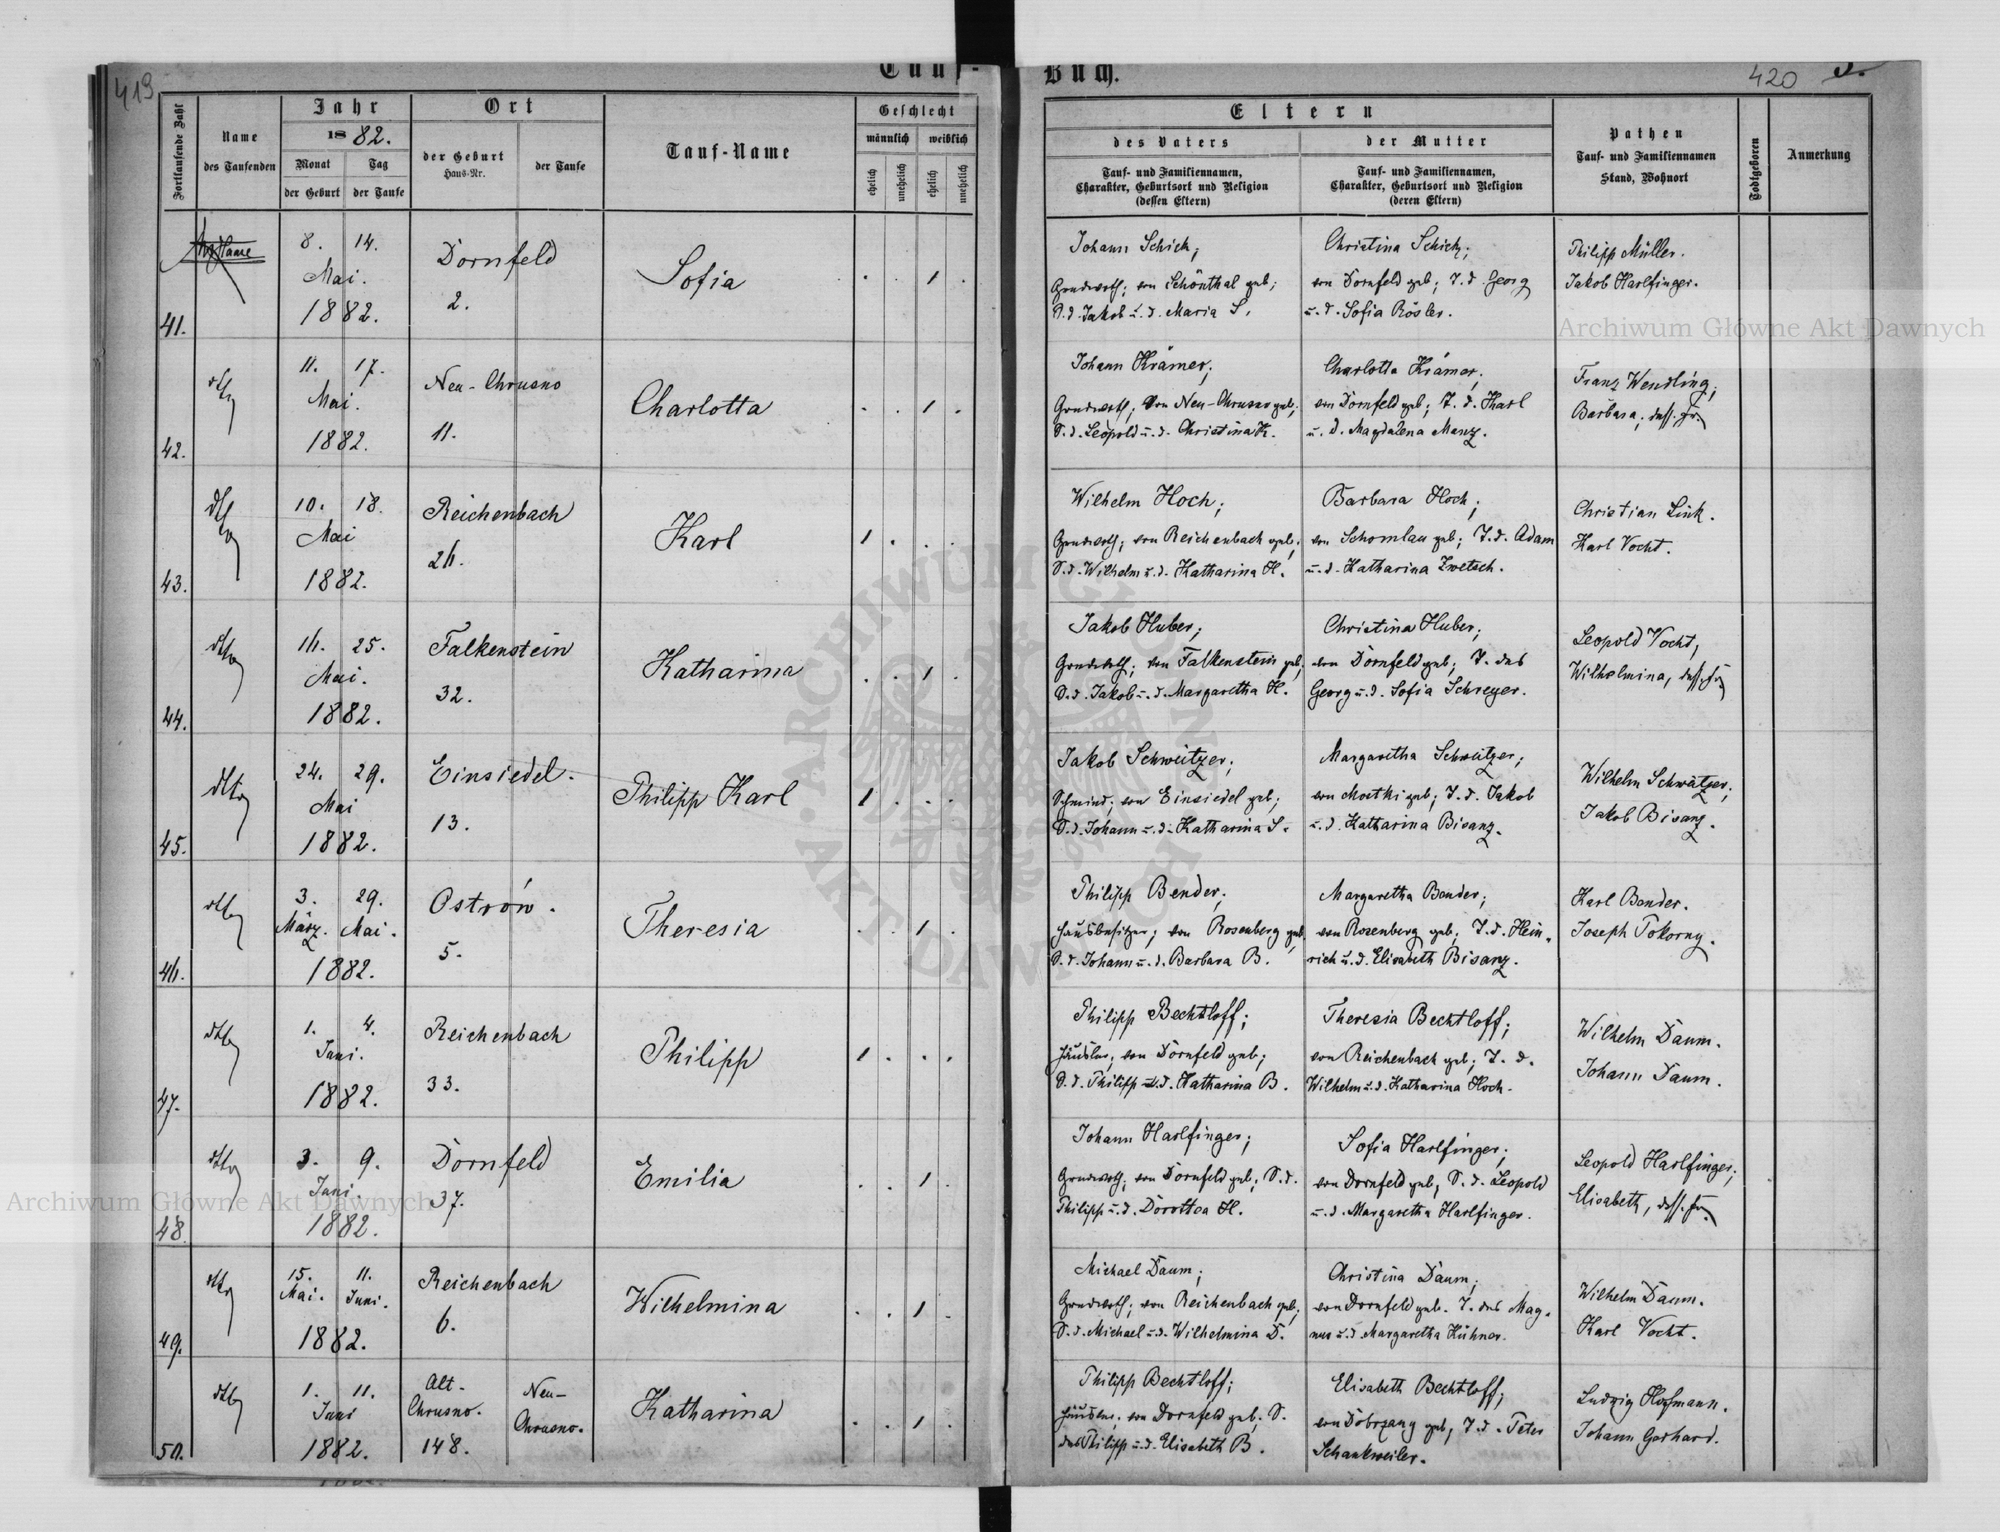 Tauf-
Buch.
419
420
3.
Fortlaufende Zahl
Name
des Taufenden
Jahr
1882.
Monat
Tag
der Geburt
der Taufe
Ort
der Geburt
Haus-Nr.
der Taufe
Tauf-Name
Geschlecht
männlich
weiblich
ehelich
unehelich
ehelich
unehelich
Eltern
des Vaters
Tauf- und Familiennamen,
Charakter, Geburtsort und Religion
(dessen Eltern)
der Mutter
Tauf- und Familiennamen,
Charakter, Geburtsort und Religion
(deren Eltern)
Pathen
Tauf- und Familiennamen
Stand, Wohnort
Todtgeboren
Anmerkung
41.
8. 14.
Mai.
1882.
Dornfeld
2.
Sofia
Johann Schick;
Grundwrth; von Schönthal geb;
S. d. Jakob u. d. Maria S.
Christina Schick;
von Dornfeld geb; T. d. Georg
u. d. Sofia Rösler.
Philipp Müller.
Jakob Harlfinger.
42.
11. 17.
Mai.
1882.
Neu-Chrusno
11.
Charlotta
Johann Krämer;
Grundwrth; von Neu-Chrusno geb;
S. d. Leopold u. d. Christina K.
Charlotta Krämer;
von Dornfeld geb; T. d. Karl
u. d. Magdalena Manz.
Franz Wendling;
Barbara; dess. Fr.
43.
10. 18.
Mai
1882.
Reichenbach
26.
Karl
Wilhelm Hoch;
Grundwrth; von Reichenbach geb;
S. d. Wilhelm u. d. Katharina H.
Barbara Hoch;
von Schomlau geb; T. d. Adam
u. d. Katharina Zwetsch.
Christian Link.
Karl Vocht.
44.
16. 25.
Mai.
1882.
Falkenstein
32.
Katharina
Jakob Huber;
Grundwrth; von Falkenstein geb;
S. d. Jakob u. d. Margaretha H.
Christina Huber;
von Dornfeld geb; T. des
Georg u. d. Sofia Schreyer.
Leopold Vocht,
Wilhelmina, dess. Fr.
45.
24. 29.
Mai
1882.
Einsiedel.
13.
Philipp Karl
Jakob Schweitzer;
Schmind; von Einsiedel geb;
S. d. Johann u. d. Katharina S.
Margaretha Schweitzer;
von Mostki geb; T. d. Jakob
u. d. Katharina Bisanz.
Wilhelm Schwätzer;
Jakob Bisanz.
46.
3. 29.
März. Mai.
1882.
Ostrów.
5.
Theresia
Philipp Bender;
Hausbesitzer; von Rosenberg geb.
S. d. Johann u. d. Barbara B.
Margaretha Bender;
von Rosenberg geb; T. d. Hein-
rich u. d. Elisabeth Bisanz.
Karl Bender.
Joseph Pokorny.
47.
1. 4.
Juni.
1882.
Reichenbach
33.
Philipp
Philipp Bechtloff;
Häusler; von Dornfeld geb;
S. d. Philipp u. d. Katharina B.
Theresia Bechtloff;
von Reichenbach geb; T. d.
Wilhelm u. d. Katharina Hoch.
Wilhelm Daum.
Johann Daum.
48.
3. 9.
Juni.
1882.
Dornfeld
37.
Emilia
Johann Harlfinger;
Grundwrth; von Dornfeld geb; S. d.
Philipp u. d. Dorottea H.
Sofia Harlfinger;
von Dornfeld geb; S. d. Leopold
u. d. Margaretha Harlfinger.
Leopold Harlfinger;
Elisabeth, dess. Fr.
49.
15. 11.
Mai. Juni.
1882.
Reichenbach
6.
Wilhelmina
Michael Daum;
Grundwrth; von Reichenbach geb;
S. d. Michael u. d. Wilhelmina D.
Christina Daum;
von Dornfeld geb. T. des Mag-
nus u. d. Margaretha Kühner.
Wilhelm Daum.
Karl Vocht.
50.
1. 11.
Juni
1882.
Alt-
Chrusno.
148.
Neu-
Chrusno.
Katharina
Philipp Bechtloff;
Häusler. von Dornfeld geb. S.
des Philipp u. d. Elisabeth B.
Elisabeth Bechtloff;
von Dobrzany geb; T. d. Peter
Schankweiler.
Ludwig Hofmann.
Johann Gerhard.
Archiwum Główne Akt Dawnych
Archiwum Główne Akt Dawnych
ARCHIWUM GŁÓWNE AKT DAWNYCH